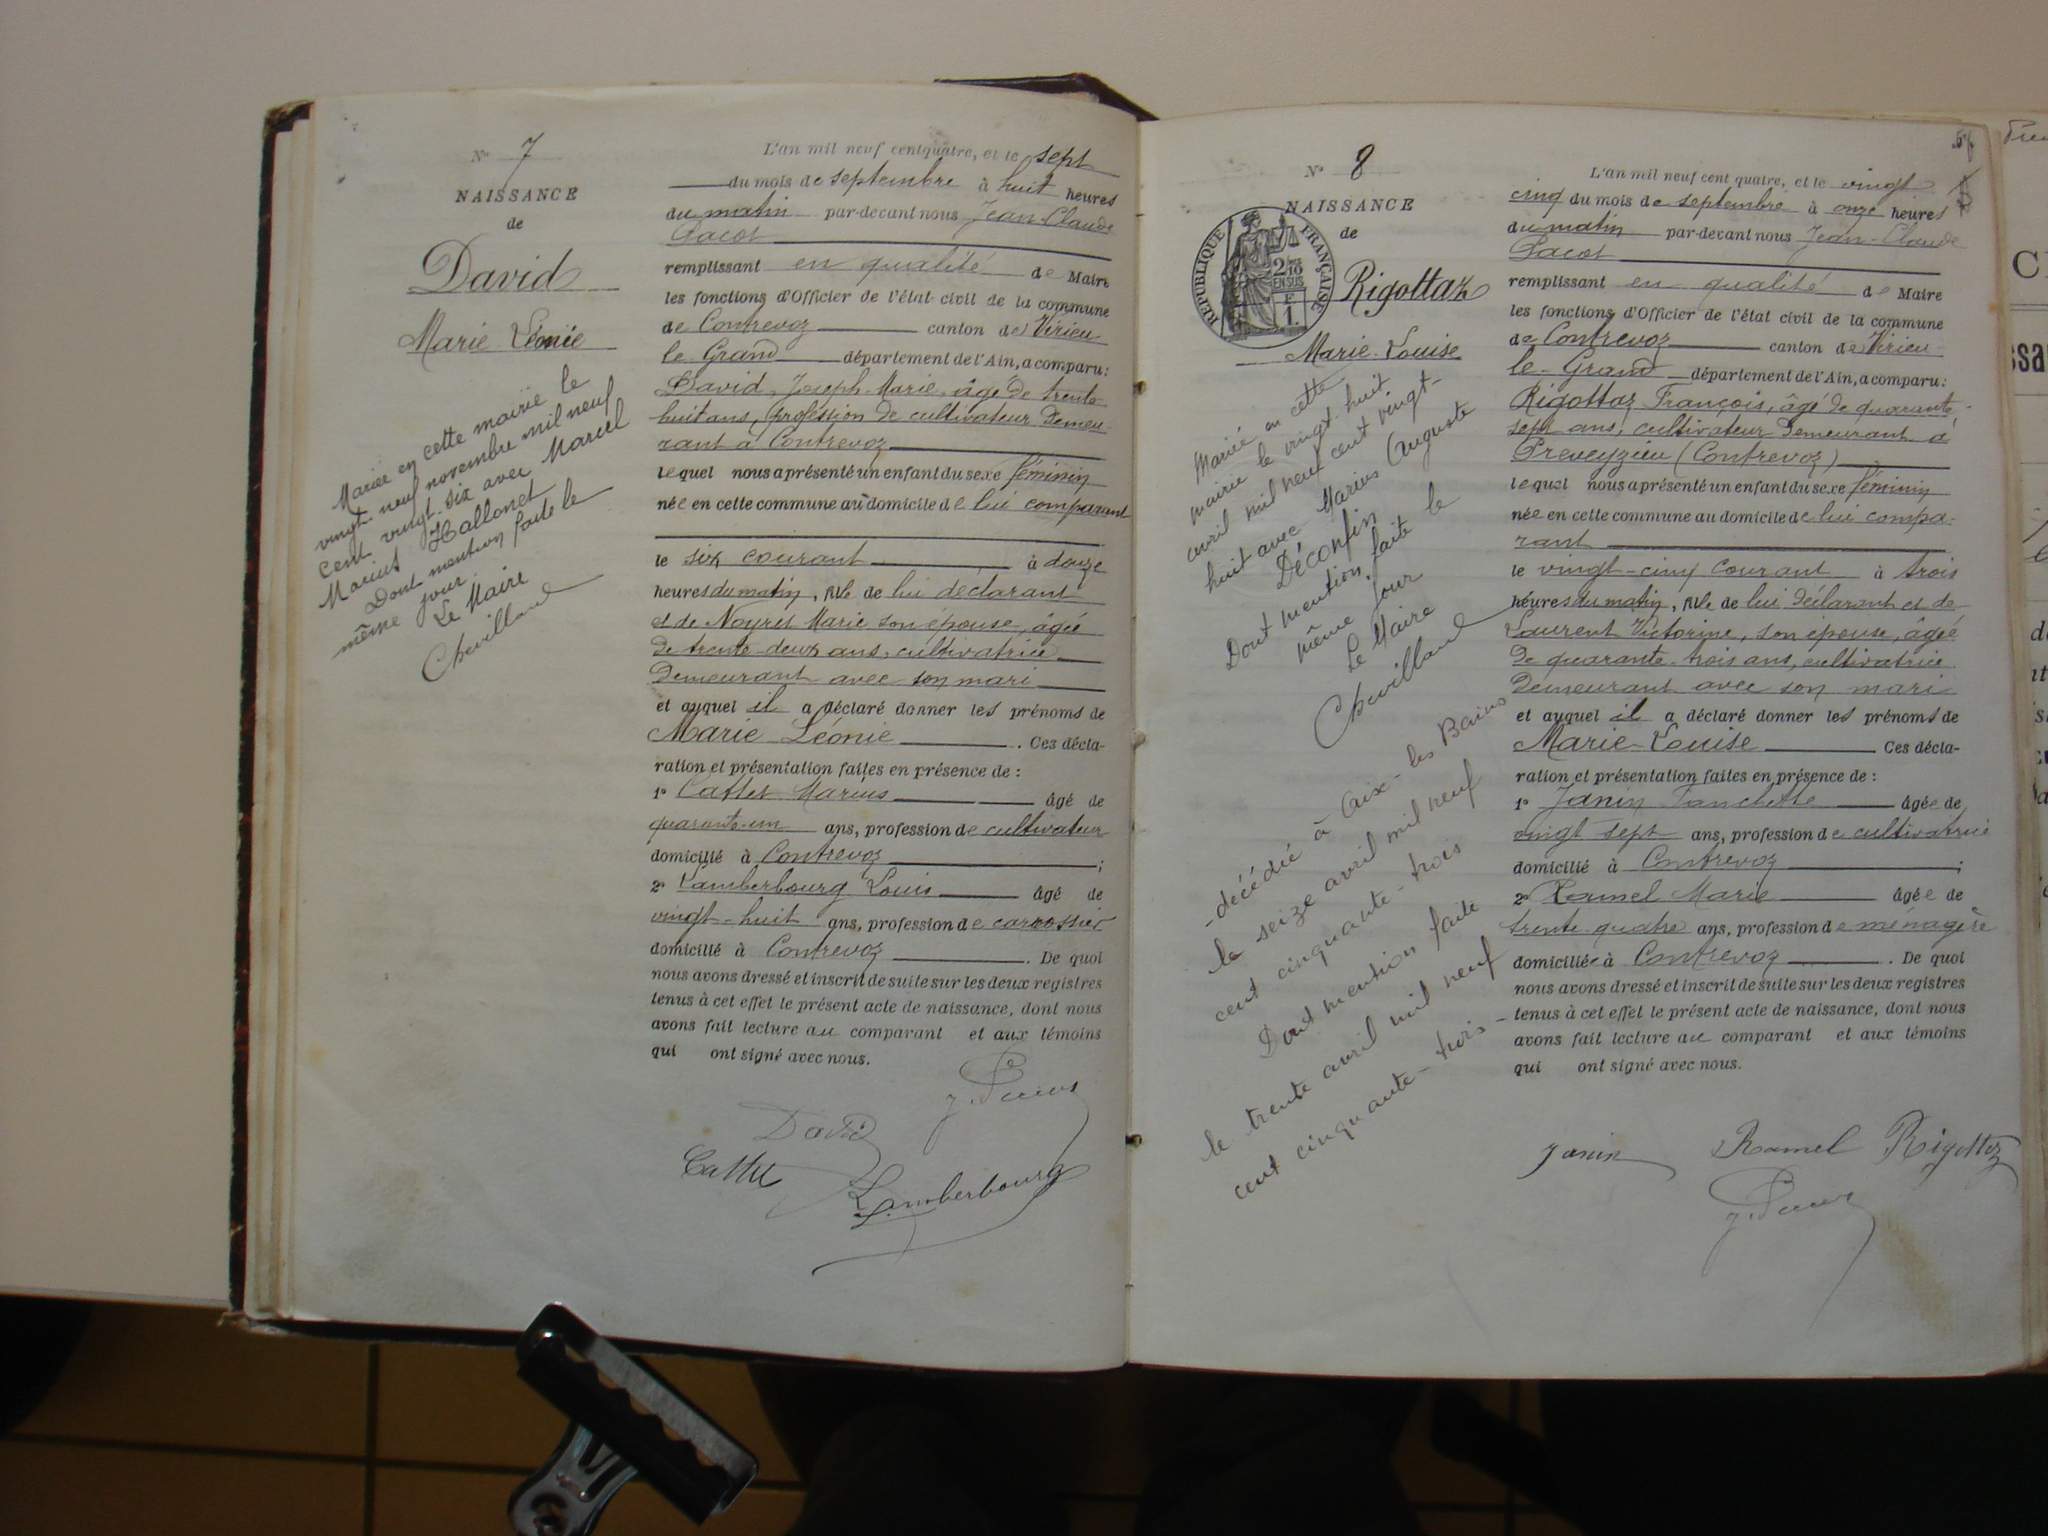 Nº 7
NAISSANCE
de
David
Marie Léonie
Mariée en cette mairie le
vingt-neuf novembre mil neuf
cent vingt-six avec Marcel
Marius Hallonet
Dont mention faite le
même jour.
Le Maire
Chevilland
L'an mil neuf cent quatre, et le sept
du mois de septembre à huit heures
du matin par-devant nous Jean-Claude
Pacot
remplissant en qualité de Maire
les fonctions d'Officier de l'état civil de la commune
de Contrevoz canton de Virieu-
le-Grand département de l'Ain, a comparu:
David, Joseph-Marie, âgé de trente-
huit ans, profession de cultivateur demeu-
rant à Contrevoz
lequel nous a présenté un enfant du sexe féminin
née en cette commune au domicile de lui comparant
le six courant à douze
heures du matin, fille de lui déclarant
et de Noyret Marie son épouse, âgée
de trente-deux ans, cultivatrice
demeurant avec son mari
et auquel il a déclaré donner les prénoms de
Marie Léonie. Ces décla-
ration et présentation faites en présence de :
1º Cattet Marius âgé de
quarante-un ans, profession de cultivateur
domicilié à Contrevoz ;
2º Lamberbourg Louis âgé de
vingt-huit ans, profession de carrossier
domicilié à Contrevoz. De quoi
nous avons dressé et inscrit de suite sur les deux registres
tenus à cet effet le présent acte de naissance, dont nous
avons fait lecture au comparant et aux témoins
qui ont signé avec nous.
David
Cattet
Lamberbourg
Nº 8
NAISSANCE
de
REPUBLIQUE FRANÇAISE
2/10
EN SUS
F
1.
Rigottaz
Marie-Louise
Mariée en cette
mairie le vingt-huit
avril mil neuf cent vingt-
huit avec Marius Auguste
Déconfin
Dont mention faite le
même jour
Le Maire
Chevilland
- décédée à Aix-les-Bains
le seize avril mil neuf
cent cinquante-trois
Dont mention faite
le trente avril mil neuf
cent cinquante-trois -
L'an mil neuf cent quatre, et le vingt
cinq du mois de septembre à onze heures
du matin par-devant nous Jean-Claude
Pacot
remplissant en qualité de Maire
les fonctions d'Officier de l'état civil de la commune
de Contrevoz canton de Virieu-
le-Grand département de l'Ain, a comparu:
Rigottaz François, âgé de quarante-
sept ans, cultivateur demeurant à
Preveyzieu (Contrevoz)
lequel nous a présenté un enfant du sexe féminin
née en cette commune au domicile de lui compa-
rant
le vingt-cinq courant à trois
heures du matin, fille de lui déclarant et de
Laurent Victorine, son épouse, âgée
de quarante-trois ans, cultivatrice
demeurant avec son mari
et auquel il a déclaré donner les prénoms de
Marie-Louise Ces décla-
ration et présentation faites en présence de :
1º Janin Fanchette âgée de
vingt sept ans, profession de cultivatrice
domicilié à Contrevoz ;
2º Ramel Marie âgée de
trente-quatre ans, profession de ménagère
domiciliée à Contrevoz. De quoi
nous avons dressé et inscrit de suite sur les deux registres
tenus à cet effet le présent acte de naissance, dont nous
avons fait lecture au comparant et aux témoins
qui ont signé avec nous.
Janin Ramel Rigottaz